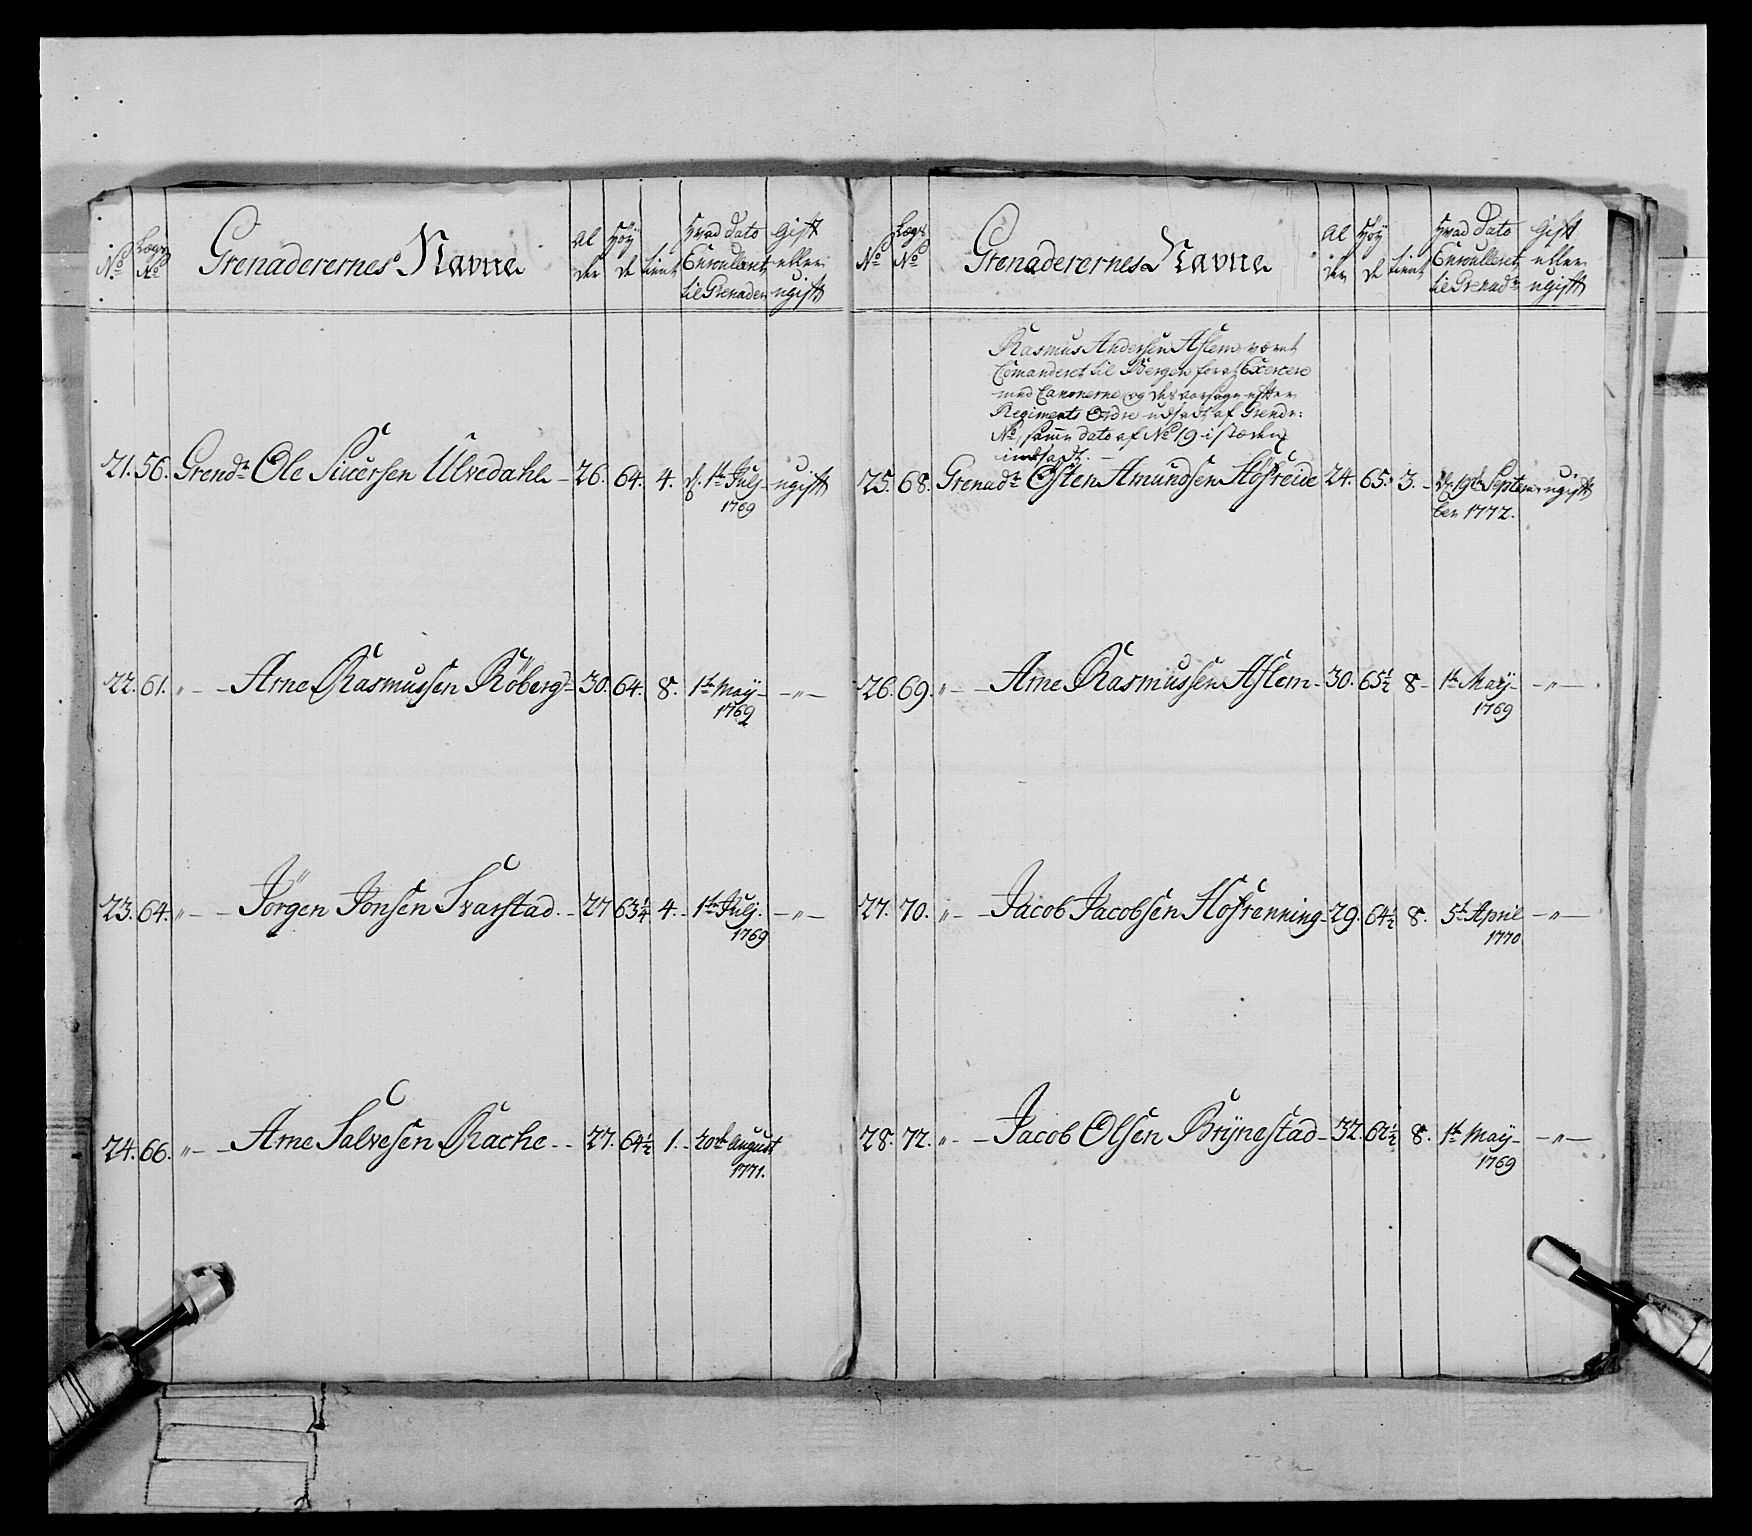 No Lægs No Grenaderernes Navne Al der Høy de tient Hvad dato Enroulleret til Grenader Gift eller ugift
21. 56. Grendr Ole Siuersen Ulvedahl 26. 64. 4. d. 1te Julj 1769 ugift
22. 61. " Arne Rasmussen Röberg 30. 64. 8. 1te Maÿ 1769 - " -
23. 64. " Jörgen Jonsen Svarstad 27 63¼ 4. 1te Julj 1769 - " -
24. 66. " Arne Salvesen Rache 27. 64½ 1. 20de August 1771.
No Lægs No Grenaderernes Navne Al der Høy de tient Hvad Dato Enroulleret til Grenadr Gift eller ugift
Rasmus Andersen Aslem været
Comanderet til Bergen for at Exercere
med Canonerne og
Regiments Ordre udsadt af Grendr:
No, samme dato af No 19 i stæden
indsadt.
25. 68. Grenadr Østen Amundsen Höfreide 24. 65. 3. 19de Septem-
ber 1772. ugift
26. 69. " Arne Rasmussen Aslem 30. 65½ 8 1te Maÿ 1769 - " -
27. 70. " Jacob Jacobsen Hofrenning 29. 64½ 8. 5te April 1770 - " -
28. 72. " Jacob Olsen Brÿnestad 32. 62½ 8. 1te Maÿ 1769 - " -